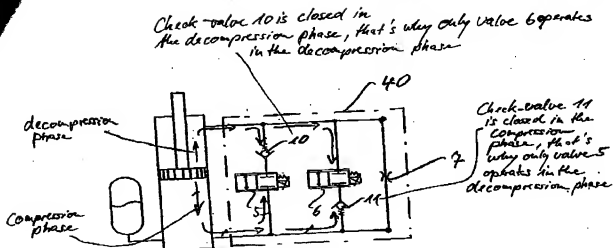 Check-valve 10 is closed in
the decompression phase, that's why only valve 6 operates
in the decompression phase
40
decompression
phase
Check-valve 11
is closed in the
compression
phase, that's
why only valve 5
operates in the
decompression phase
10
7
5
6
11
Compression
phase